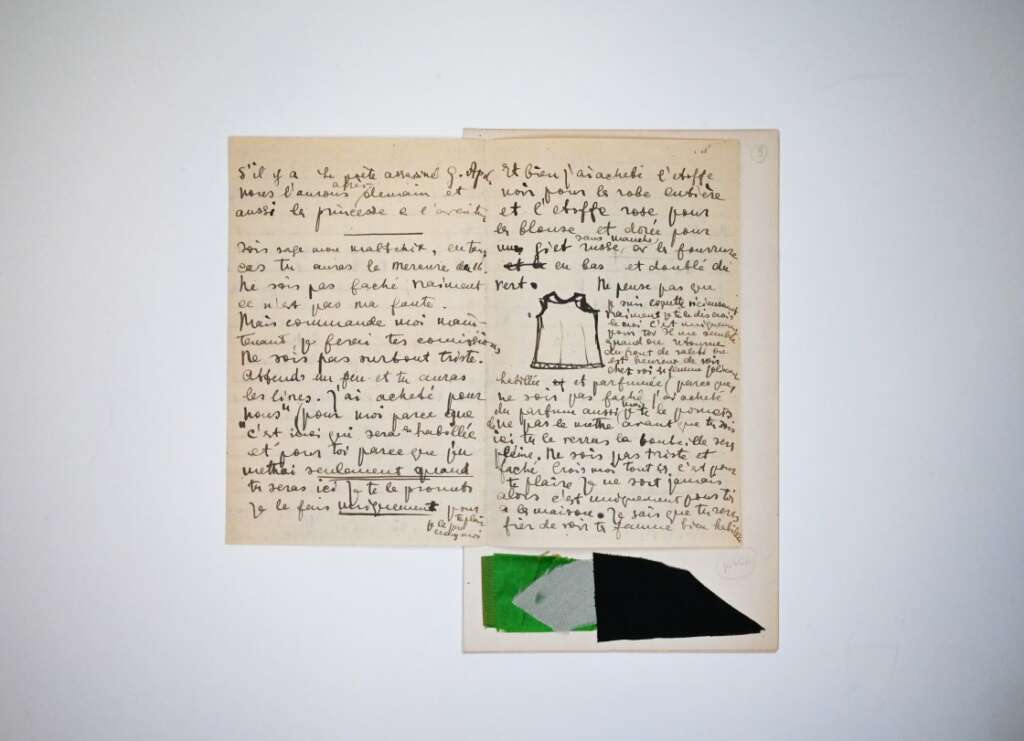 S'il y a le poète assassiné G. Apol
nous l'aurons après demain et
aussi la princesse e l'
Sois sage mon en tous
cas tu auras le mercure
Ne sois pas faché vraiment
ce n'est pas ma faute.
Mais commande moi main-
tenant, je ferai tes comissions
Ne sois pas surtout triste.
Attends un peu et tu auras
les livres. J'ai acheté pour
"nous" (pour moi parce que
c'est moi qui sera habillée
et pour toi parce que j'en
mettrai seulement quand
tu seras ici Je te le promets
Je le fais uniquement pour
te plaire
moi
Et bien j'ai acheté l'etoffe
noir pour la robe entière
et l'etoffe rose pour
la blouse et dorée pour
un gilet russe sans manche, la fourrure
en bas et doublé du
vert. Ne pense pas que
je suis coquette
vraiment je te le dis crois
le moi c'est uniquem
pour toi Il me semble
quand on retourne
du front de saleté on
est heureux de voir
chez soi sa femme
habillée et parfumée, parce que,
ne sois pas faché, j'ai acheté
du parfum aussi mais je te le promets
de ne pas le mettre avant que tu sois
ici tu le verras la bouteille sera
pleine. Ne sois pas triste et
faché Crois moi tout ça, c'est pour
te plaire Je ne sort jamais
alors c'est uniquement pour toi
a la maison. Je sais que tu seras
fier de voir ta femme bien habillée